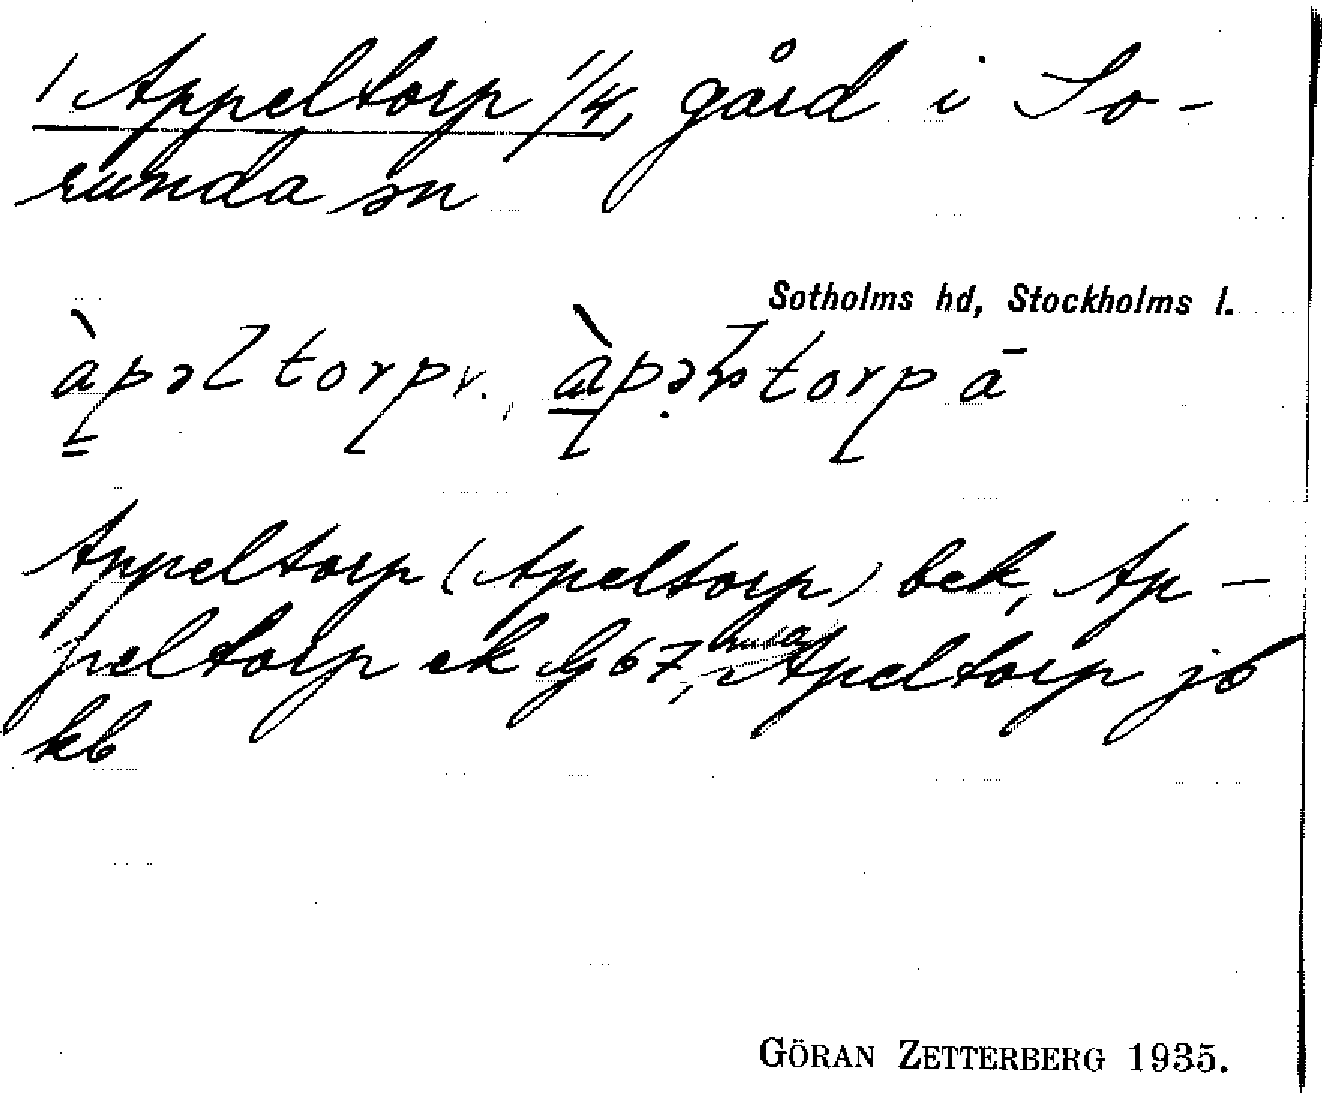 1 Appeltorp 1/4, gård i So-
runda sn
Sotholms hd, Stockholms l.
àpəl torp v., àpəl torp a
Appeltorp (Apeltorp) bek, Ap-
peltorp ek G 67, Apeltorp jb
kb
GÖRAN ZETTERBERG 1935.